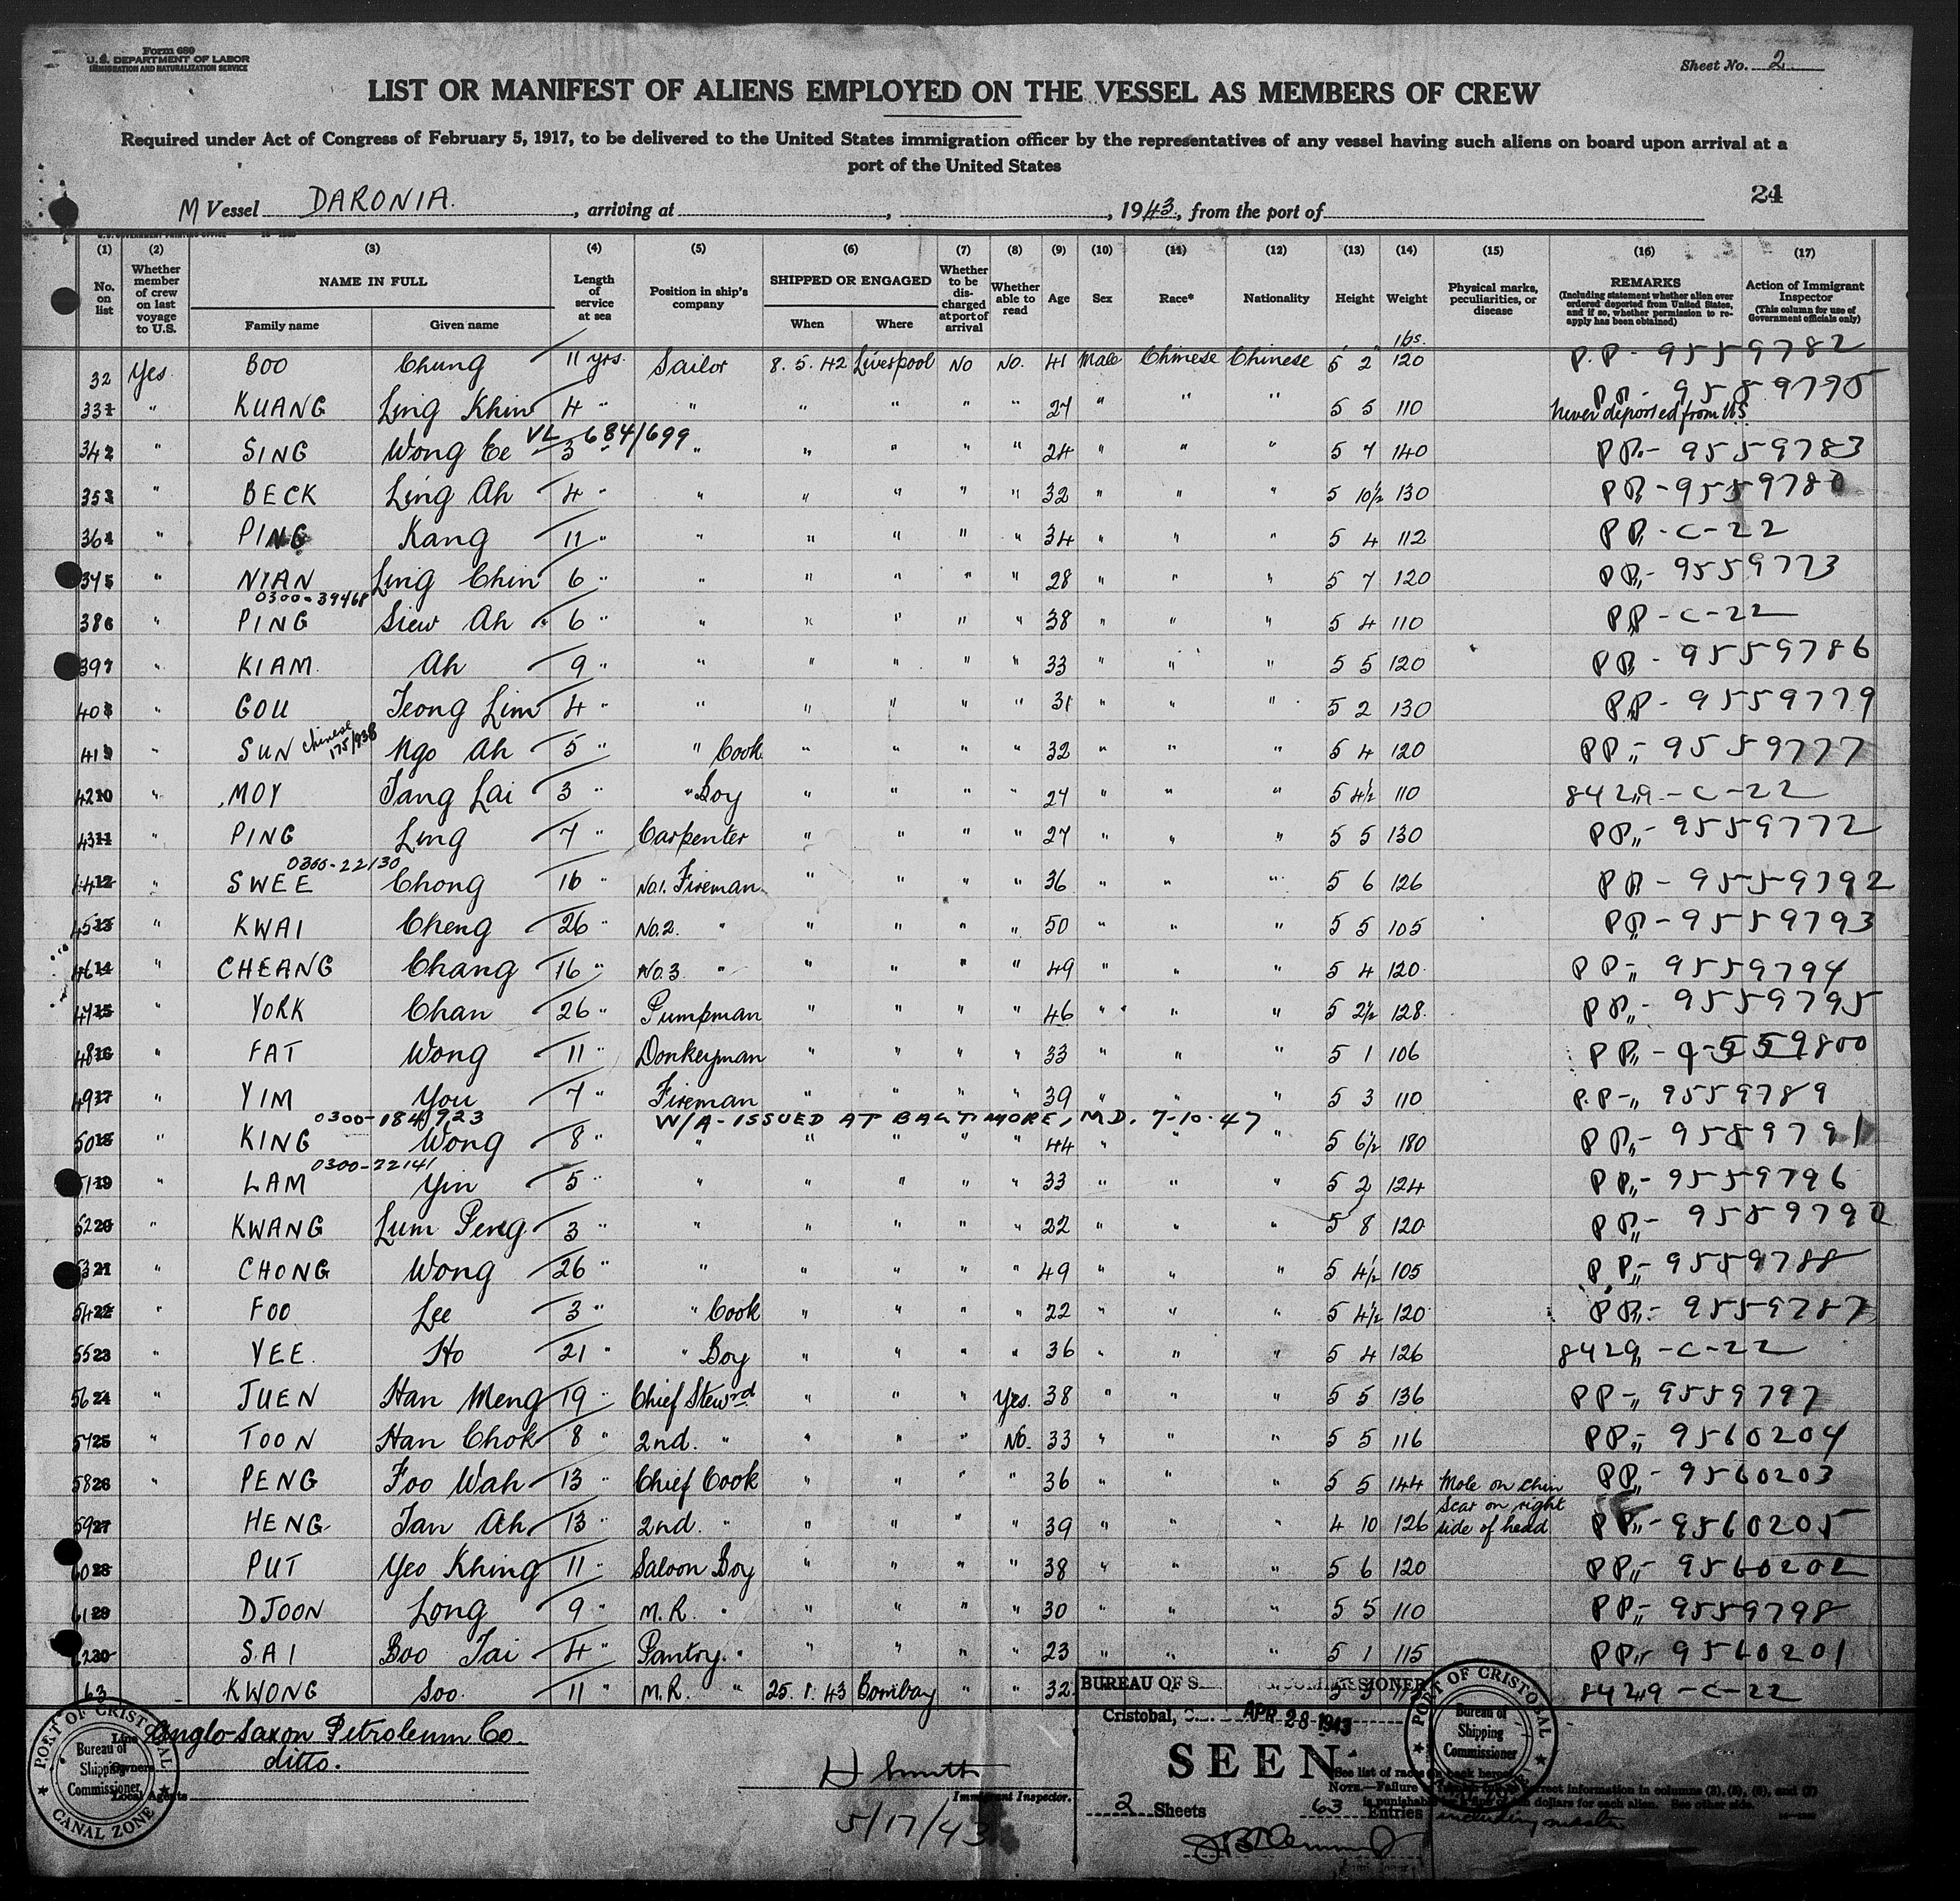 Form 680
U. S. DEPARTMENT OF LABOR
IMMIGRATION AND NATURALIZATION SERVICE
Sheet No. 2
LIST OR MANIFEST OF ALIENS EMPLOYED ON THE VESSEL AS MEMBERS OF CREW
Required under Act of Congress of February 5, 1917, to be delivered to the United States immigration officer by the representatives of any vessel having such aliens on board upon arrival at a
port of the United States
24
M Vessel DARONIA. , arriving at , , 1943, from the port of
(1) (2) (3) (4) (5) (6) (7) (8) (9) (10) (11) (12) (13) (14) (15) (16) (17)
No. on list Whether member of crew on last voyage to U.S. NAME IN FULL Family name Given name Length of service at sea Position in ship's company SHIPPED OR ENGAGED When Where Whether to be discharged at port of arrival Whether able to read Age Sex Race* Nationality Height Weight Physical marks, peculiarities, or disease REMARKS (Including statement whether alien ever ordered deported from United States, and if so, whether permission to reapply has been obtained) Action of Immigrant Inspector (This column for use of Government officials only)
lbs.
32 Yes. BOO Chung 11 yrs. Sailor 8. 5. 42 Liverpool No No. 41 Male Chinese Chinese 5 2 120 P.P - 9559782
33 " KUANG Ling Khin 4 " " " " " " 27 " " " 5 5 110 PP - 9589790 Never deported from US
VL 684/699
34 " SING Wong Ee 3 " " " " " " 24 " " " 5 7 140 PP. - 9559783
35 " BECK Ling Ah 4 " " " " " " 32 " " " 5 10½ 130 PP - 9559780
36 " PING Kang 11 " " " " " " 34 " " " 5 4 112 PP - C-22
37 " NIAN Ling Chin 6 " " " " " " 28 " " " 5 7 120 PP - 9559773
0300-39468
38 " PING Siew Ah 6 " " " " " " 38 " " " 5 4 110 PP - C-22
39 " KIAM. Ah 9 " " " " " " 33 " " " 5 5 120 PP - 9559786
40 " GOU Teong Lim 4 " " " " " " 31 " " " 5 2 130 PP - 9559779
41 " SUN Chinese 175/938 Ngo Ah 5 " " Cook " " " " 32 " " " 5 4 120 PP - 9559777
42 " MOY Tang Lai 3 " " Boy " " " " 27 " " " 5 4½ 110 8429 - C-22
43 " PING Ling 7 " Carpenter " " " " 27 " " " 5 5 130 PP - 9559772
0300-22130
44 " SWEE Chong 16 " No.1. Fireman " " " " 36 " " " 5 6 126 PP - 9559792
45 " KWAI Cheng 26 " No.2. " " " " " 50 " " " 5 5 105 PP - 9559793
46 " CHEANG Chang 16 " No.3 " " " " " 49 " " " 5 4 120 PP - 9559794
47 " YORK Chan 26 " Pumpman " " " " 46 " " " 5 2½ 128. PP - 9559795
48 " FAT Wong 11 " Donkeyman " " " " 33 " " " 5 1 106 PP - 9559800
49 " YIM You 7 " Fireman " " " " 39 " " " 5 3 110 P.P - 9559789
0300-184923 W/A - ISSUED AT BALTIMORE, MD. 7-10-47
50 " KING Wong 8 " " " " " " 44 " " " 5 6½ 180 PP - 9589791
0300-22141
51 " LAM Yin 5 " " " " " " 33 " " " 5 2 124 PP - 9559796
52 " KWANG Lum Peng 3 " " " " " " 22 " " " 5 8 120 PP - 9589790
53 " CHONG Wong 26 " " " " " " 49 " " " 5 4½ 105 PP - 9559788
54 " FOO Lee 3 " " Cook " " " " 22 " " " 5 4½ 120 PP - 9559787
55 " YEE. Ho 21 " " Boy " " " " 36 " " " 5 4 126 8429 - C-22
56 " JUEN Han Meng 19 " Chief Stewrd " " " Yes. 38 " " " 5 5 136 PP - 9559797
57 " TOON Han Chok 8 " 2nd. " " " " No. 33 " " " 5 5 116 PP - 9560204
58 " PENG Foo Wah 13 " Chief Cook " " " " 36 " " " 5 5 144 Mole on chin PP - 9560203
59 HENG Tan Ah 13 " 2nd. " " " " " 39 " " " 4 10 126 Scar on right side of head PP - 9560205
60 PUT Yeo Khing 11 " Saloon Boy " " " " 38 " " " 5 6 120 PP - 9560202
61 DJOON Long 9 " M.R. " " " " " 30 " " " 5 5 110 PP - 9559798
62 SAI Boo Tai 4 " Pantry " " " " " 23 " " " 5 1 115 PP - 9560201
63 KWONG Soo 11 " M.R. " 25. 1. 43 Bombay " " 32 8429 - C-22
Line Anglo-Saxon Petroleum Co
Owners ditto.
Local Agents
H Smith
Immigrant Inspector.
5/17/43
PORT OF CRISTOBAL
Bureau of Shipping Commissioner
CANAL ZONE
BUREAU OF S COMMISSIONER
Cristobal, C. APR 28 1943
SEEN
2 Sheets 63 Entries including master
PORT OF CRISTOBAL
Bureau of Shipping Commissioner
See list of races on back hereof.
NOTE.—Failure to correct information in columns (3), (5), (6), and (7)
is punishable dollars for each alien. See other side.